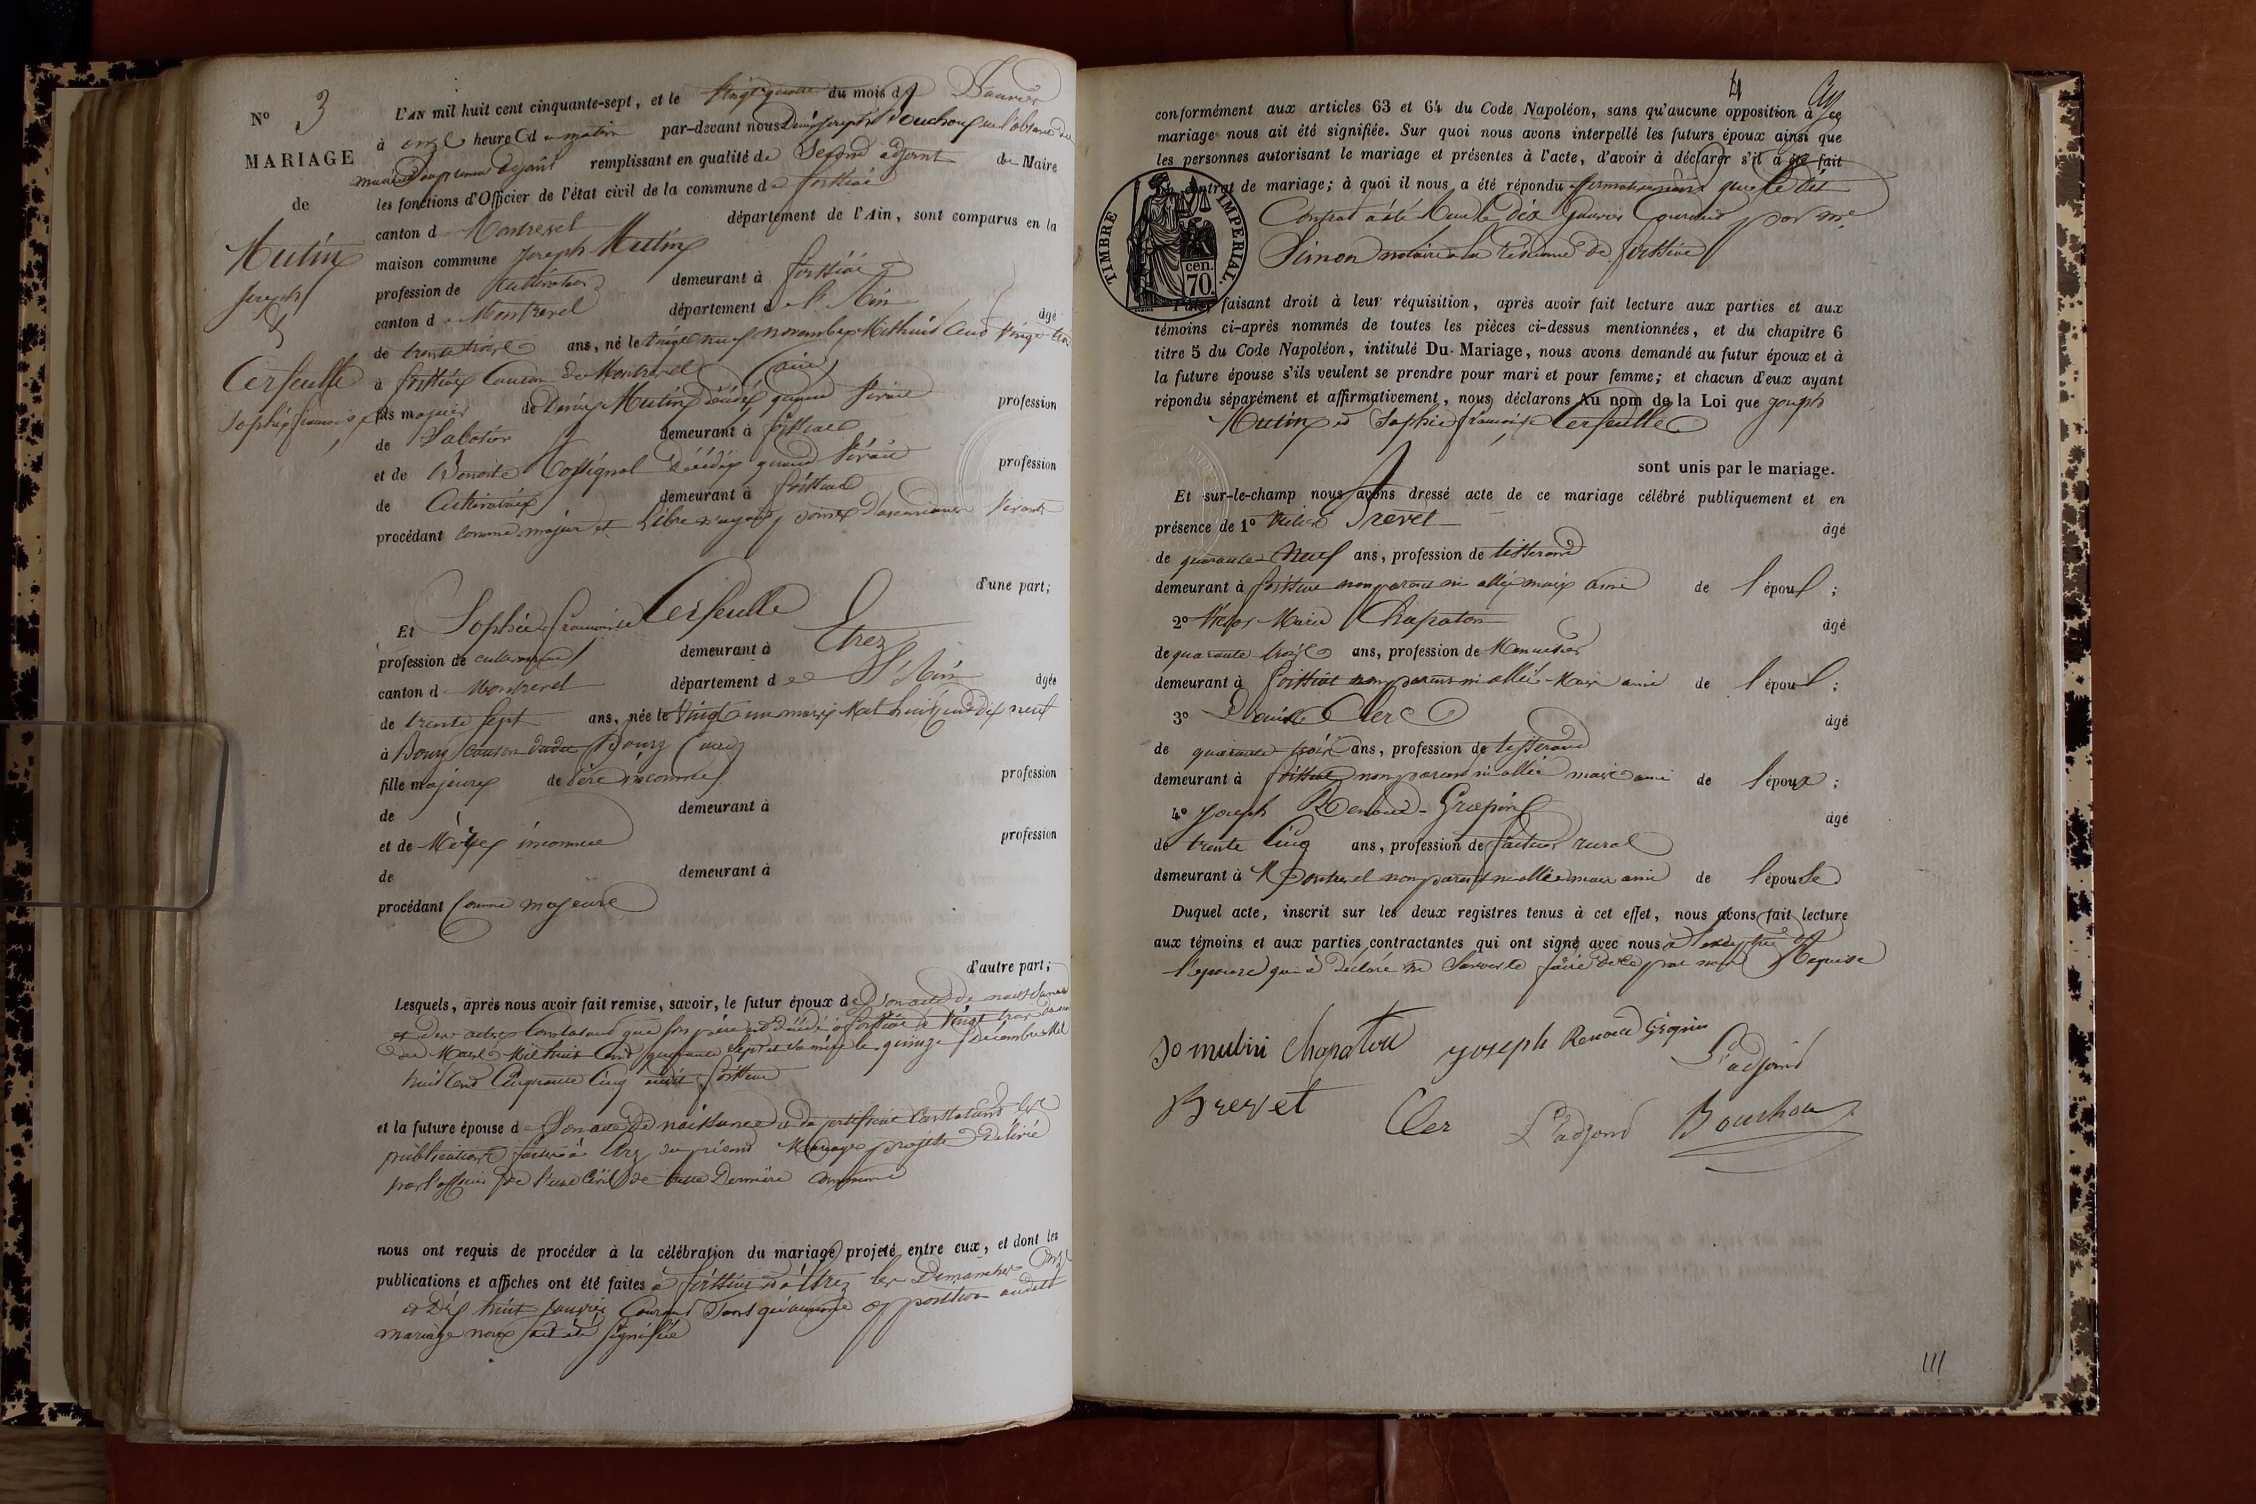 N° 3
MARIAGE
de
Mutin
Joseph
&
Cerfeulle
Sophie françoise
L'AN mil huit cent cinquante-sept, et le Vingt quatre du mois de Janvier
à onze heures du matin par-devant nous Denis Joseph Bouchoux en l'absence du
maire & du premier adjoint remplissant en qualité de Second adjoint de Maire
les fonctions d'Officier de l'état civil de la commune de foissiat
canton d Montrevel département de l'Ain, sont comparus en la
maison commune Joseph Mutin
profession de Cultivateur demeurant à foissiat
canton d Montrevel département de l'Ain âgé
de trente trois ans, né le vingt neuf novembre Mil huit Cent Vingt trois
à foissiat Canton de Montrevel (ain)
fils majeur de Denis Mutin décédé quand Vivait profession
de Sabotier demeurant à foissiat
et de Benoite Cossignol Décédée quand Vivait profession
de Cultivatrice demeurant à foissiat
procédant comme majeur et Libre n'ayant point d'ascendance Vivants
d'une part;
Et Sophie françoise Cerfeulle
profession de cultivatrice demeurant à Etrez
canton d Montrevel département de L'Ain âgée
de trente Sept ans, née le Vingt un mars Mil huit cent dix neuf
à Bourg canton dudit Bourg (ain)
fille majeure de Père inconnu profession
de demeurant à
et de Mère inconnue profession
de demeurant à
procédant Comme majeure
d'autre part;
Lesquels, après nous avoir fait remise, savoir, le futur époux de Son acte de naissance
et des actes Constatant que son père est décédé à foissiat le Vingt trois du mois
de Mars Mil huit Cent quarante Sept et sa mère le quinze Décembre Mil
huit Cent Cinquante Cinq audit foissiat
et la future épouse de Son acte de naissance et du certificat Constatant les
publications faites à Etrez du présent Mariage projeté Délivré
par l'officier de l'état Civil de cette Dernière commune
nous ont requis de procéder à la célébration du mariage projeté entre eux, et dont les
publications et affiches ont été faites à foissiat et à Etrez les Dimanches onze
et Dix huit Janvier Courant Sans qu'aucune opposition audit
mariage nous ait été signifiée
4
conformément aux articles 63 et 64 du Code Napoléon, sans qu'aucune opposition à ce
mariage nous ait été signifiée. Sur quoi nous avons interpellé les futurs époux ainsi que
les personnes autorisant le mariage et présentes à l'acte, d'avoir à déclarer s'il a été fait
contrat de mariage; à quoi il nous a été répondu affirmativement que le dit
Contrat a été Reçu le dix Janvier Courant par me
Simon notaire à la résidence de foissiat
TIMBRE IMPÉRIAL.
cen.
70.
Puis, faisant droit à leur réquisition, après avoir fait lecture aux parties et aux
témoins ci-après nommés de toutes les pièces ci-dessus mentionnées, et du chapitre 6
titre 5 du Code Napoléon, intitulé Du Mariage, nous avons demandé au futur époux et à
la future épouse s'ils veulent se prendre pour mari et pour femme; et chacun d'eux ayant
répondu séparément et affirmativement, nous déclarons Au nom de la Loi que Joseph
Mutin et Sophie françoise Cerfeulle
sont unis par le mariage.
Et sur-le-champ nous avons dressé acte de ce mariage célébré publiquement et en
présence de 1° Brevet âgé
de quarante Neuf ans, profession de tisserand
demeurant à foissiat non parent ni allié mais ami de l'époux;
2° Marie Chapaton âgé
de quarante trois ans, profession de Menuisier
demeurant à foissiat non parent ni allié Mais ami de l'époux;
3° Clerc âgé
de quarante trois ans, profession de tisserand
demeurant à foissiat non parent ni allié mais ami de l'époux;
4° Joseph Renoud-Grappin âgé
de trente Cinq ans, profession de facteur rural
demeurant à Montrevel non parent ni allié mais ami de l'épouse
Duquel acte, inscrit sur les deux registres tenus à cet effet, nous avons fait lecture
aux témoins et aux parties contractantes qui ont signé avec nous à l'exception de
l'épouse qui a déclaré ne Savoir le faire de ce par nous Requise
Jo mutin Chapatou Joseph Renoud Grapin
L'adjoint
Brevet Cler L'adjoint Bouchoux
111